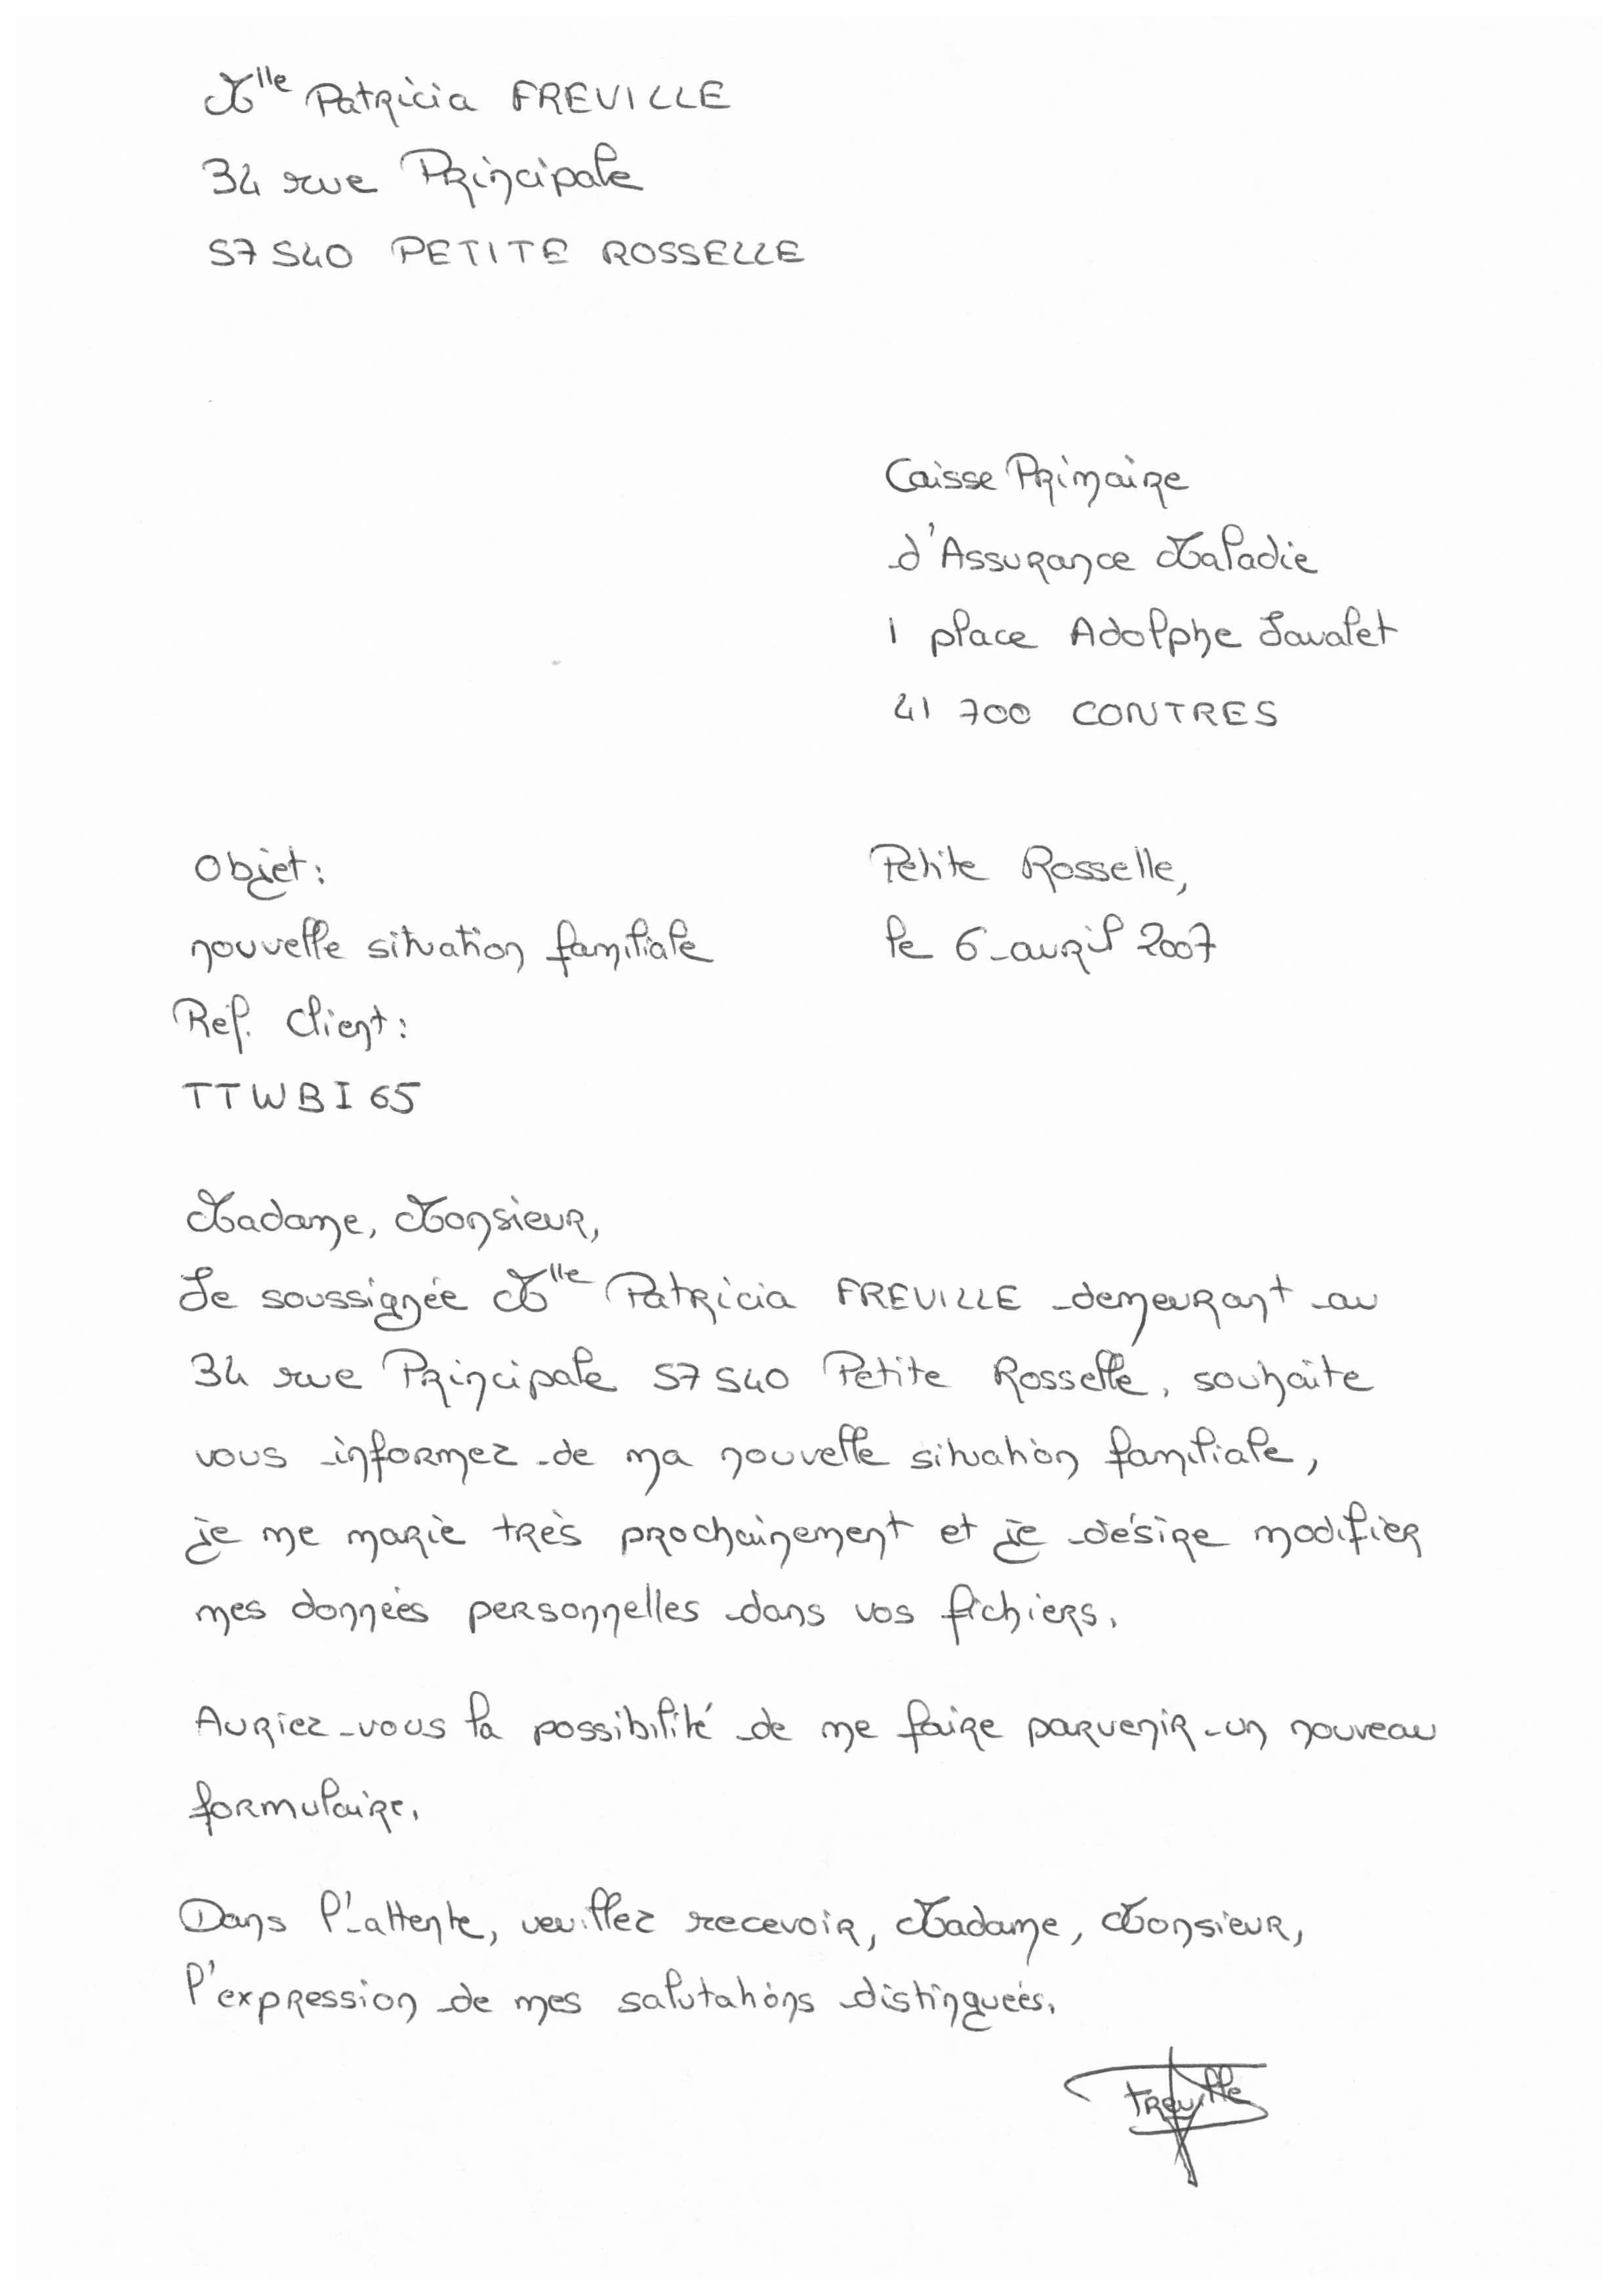 Mlle Patricia FREVILLE
34 rue Principale
57540 PETITE ROSSELLE
Caisse Primaire
d'Assurance Maladie
1 place Adolphe Javalet
41 700 CONTRES
Objet:
nouvelle situation familiale
Ref. Client:
TTWBI65
Petite Rosselle,
le 6 avril 2007
Madame, Monsieur,
Je soussignée Mlle Patricia FREVILLE demeurant au
34 rue Principale 57540 Petite Rosselle, souhaite
vous informez de ma nouvelle situation familiale,
je me marie très prochainement et je désire modifier
mes données personnelles dans vos fichiers.
Auriez-vous la possibilité de me faire parvenir un nouveau
formulaire.
Dans l'attente, veuillez recevoir, Madame, Monsieur,
l'expression de mes salutations distinguées.
Freville